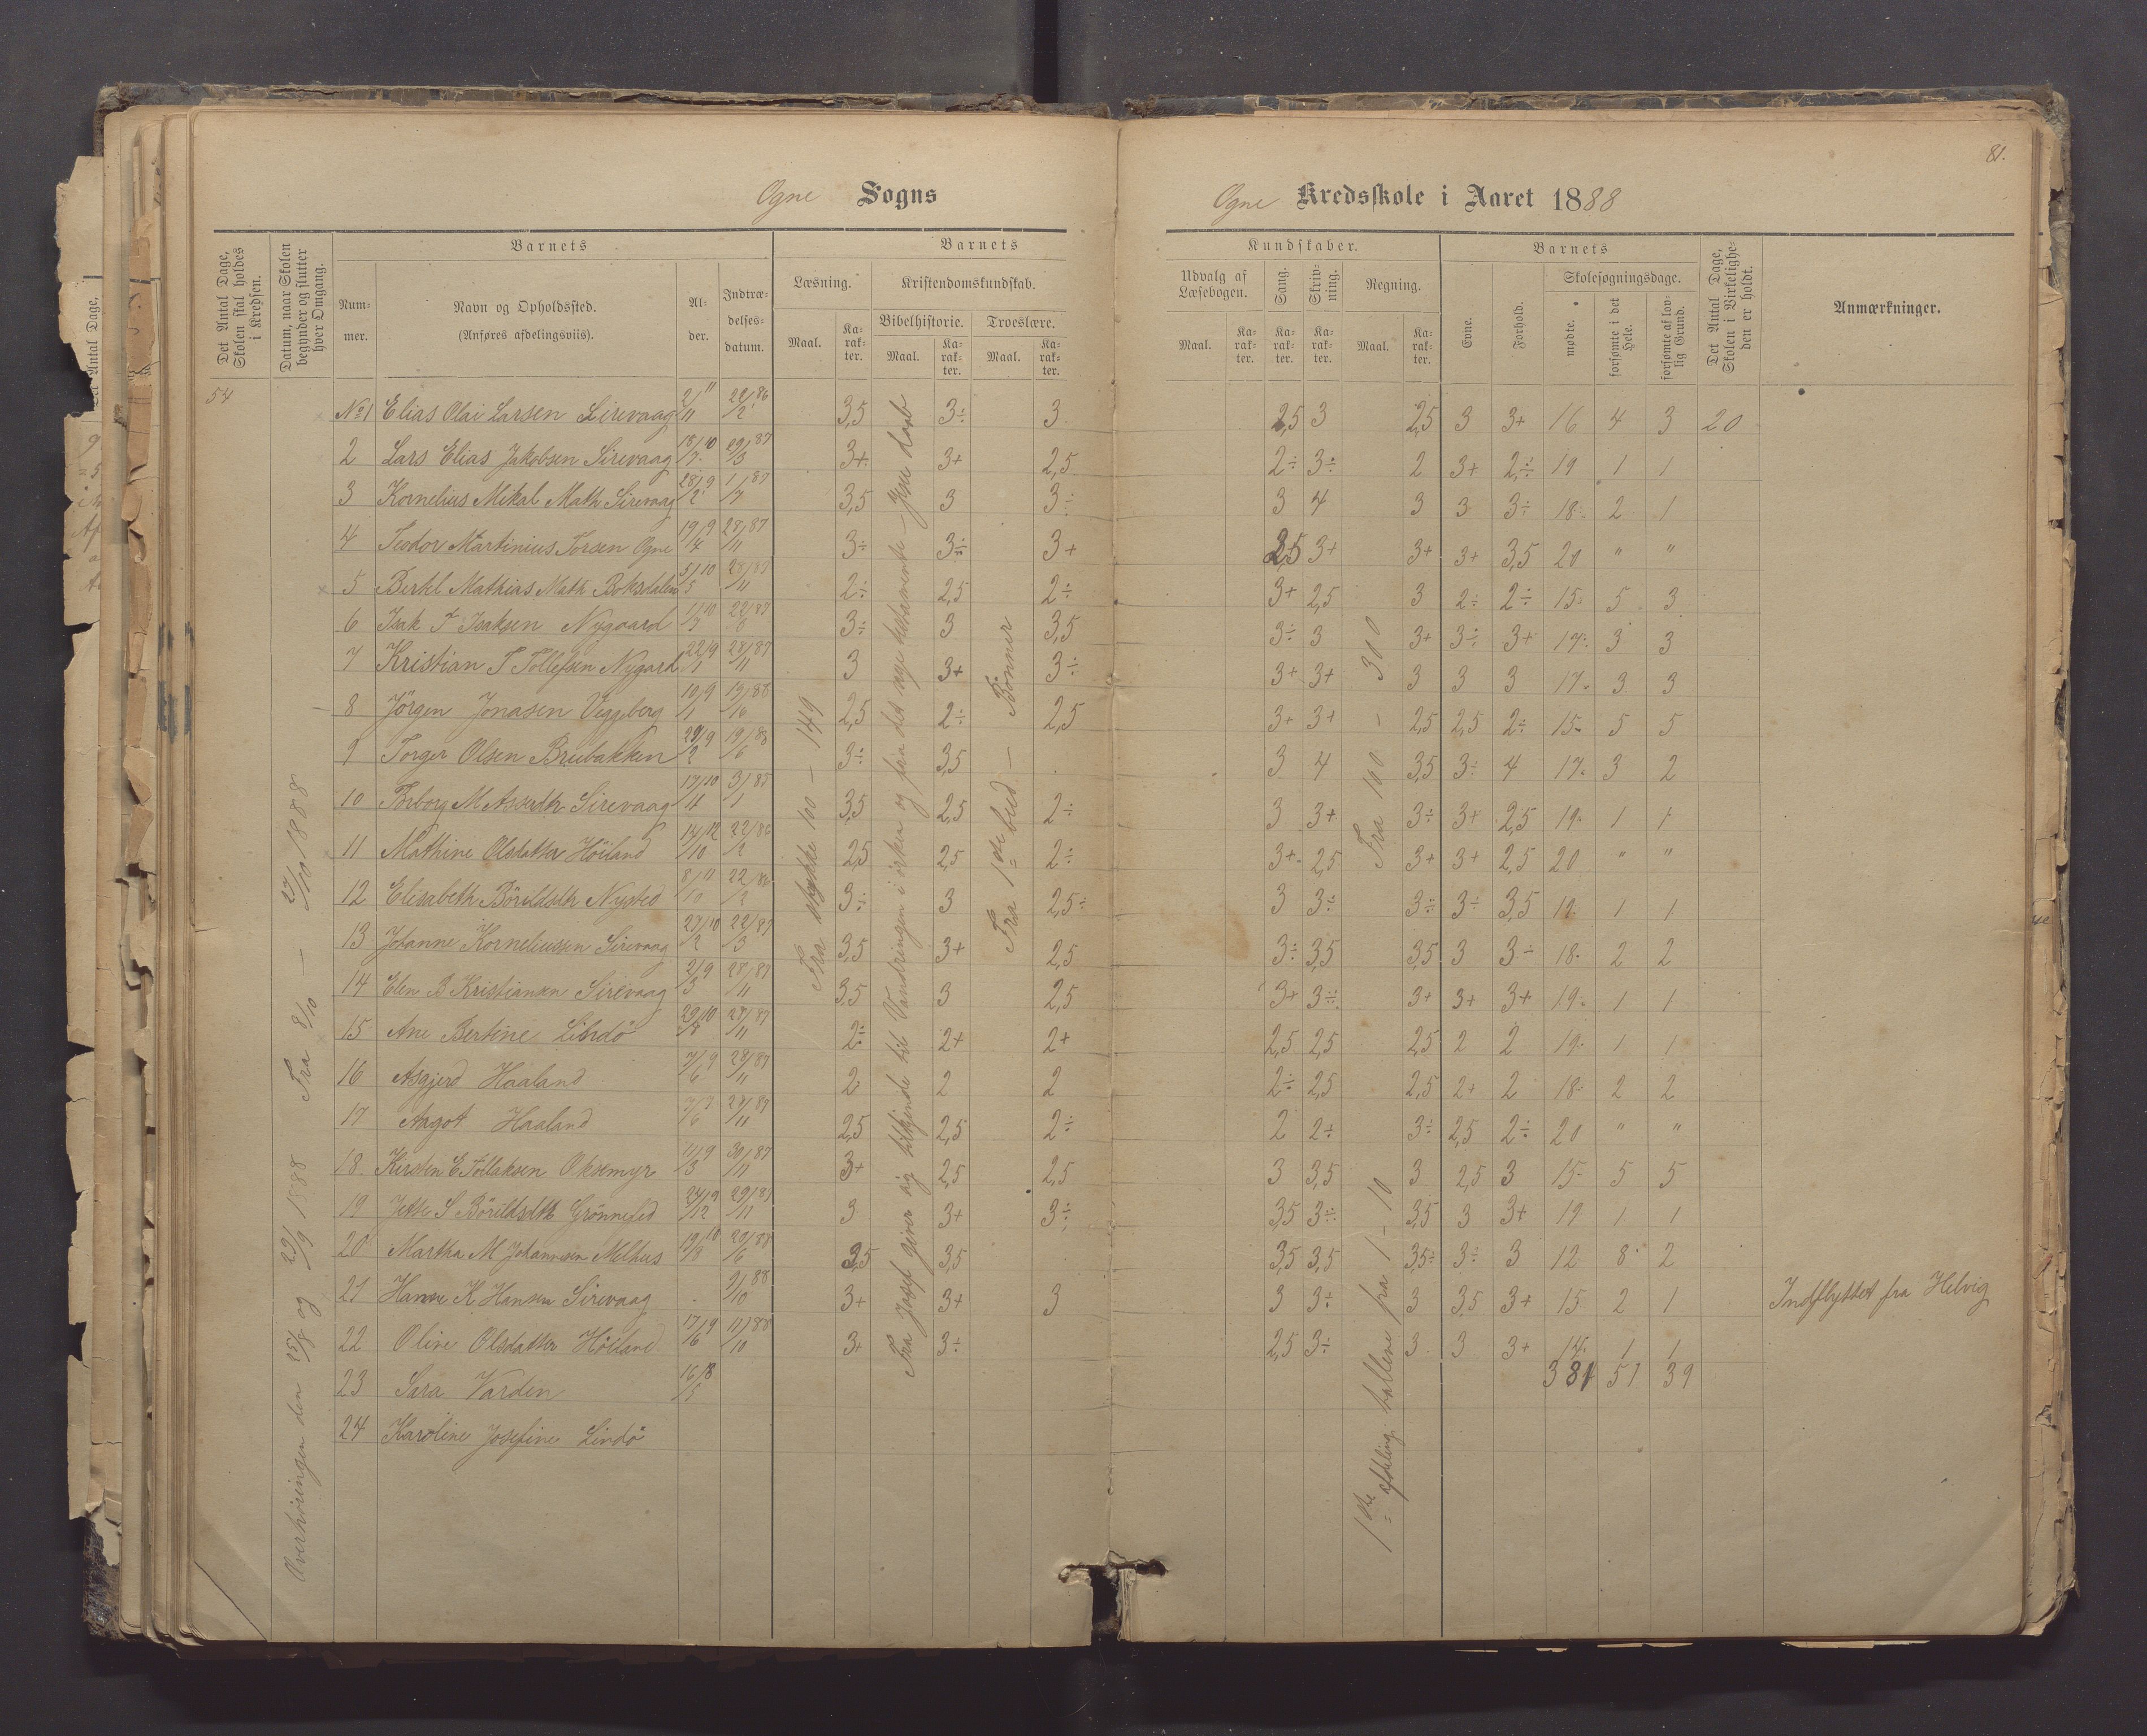 81.
Ogne Sogns
Ogne Kredsskole i Aaret 1888
Det Antal Dage, Skolen skal holdes i Kredsen.
Datum, naar Skolen begynder og slutter hver Omgang.
Barnets
Num-mer.
Navn og Opholdssted.
(Anføres afdelingsviis).
Al-der.
Indtræ-delses-datum.
Barnets
Læsning.
Maal.
Ka-rak-ter.
Kristendomskundskab.
Bibelhistorie.
Maal.
Ka-rak-ter.
Troeslære.
Maal.
Ka-rak-ter.
Kundskaber.
Udvalg af Læsebogen.
Maal.
Ka-rak-ter.
Sang.
Ka-rak-ter.
Skriv-ning.
Ka-rak-ter.
Regning.
Maal.
Ka-rak-ter.
Barnets
Evne.
Forhold.
Skolesøgningsdage.
mødte.
forsømte i det Hele.
forsømte af lov-lig Grund.
Det Antal Dage, Skolen i Virkelighe-den er holdt.
Anmærkninger.
54
Overhøringen den 25/8 og 29/9 1888 Fra 8/10 — 27/10 1888
Fra stykke 100 — 149
Fra Josef giver sig tilkjende til Vandringen i ørken og fra det nye testamente — Jesu daab
Fra 1ste bud — Bønner
1ste afdeling tallene fra 1 – 10
Fra 100 — 300
No 1 Elias Olai Larsen Sirevaag 2/11 11 22/2 86 3,5 3÷ 3 2,5 3 2,5 3 3+ 16 4 3 20
2 Lars Elias Jakobsen Sirevaag 18/7 10 29/3 87 3+ 3+ 2,5 2÷ 3÷ 2 3+ 2÷ 19 1 1
3 Kornelius Mikal Math Sirevaag 28/2 9 1/7 87 3,5 3 3÷ 3 4 3 3 3÷ 18 2 1
4 Teodor Martinius Torsen Ogne 19/4 9 28/11 87 3÷ 3÷ 3+ 2,5 3+ 3+ 3+ 3,5 20 " "
5 Berkl Mathias Math Boksdalen 5/5 10 28/11 87 2÷ 2,5 2÷ 3+ 2,5 3 2÷ 2÷ 15 5 3
6 Isak T Isaksen Nygaard 1/3 10 3÷ 3 3,5 3÷ 3 3+ 3÷ 3+ 17 3 3
7 Kristian T Tollefsen Nygard 22/1 9 28/11 87 3 3+ 3÷ 3+ 3+ 3 3 3 17 3 3
8 Jörgen Jonasen Veggeberg 10/1 9 19/6 88 2,5 2÷ 2,5 3+ 3+ 2,5 2,5 2÷ 15 5 5
9 Torger Olsen Breibakken 29/2 9 19/6 88 3÷ 3,5 3 4 3,5 3÷ 4 17 3 2
10 Torborg M Asserdtr Sirevaag 17/11 10 3/1 85 3,5 2,5 2÷ 3 3+ 3÷ 3+ 2,5 19 1 1
11 Mathine Olsdatter Höiland 14/10 12 22/2 86 2,5 2,5 2÷ 3+ 2,5 3+ 3+ 2,5 20 " "
12 Elisabeth Börildsdtr Nysted 8/10 11 22/2 86 3÷ 3 2,5÷ 3 3÷ 3÷ 3÷ 3,5 19 1 1
13 Johanne Korneliussen Sirevaag 27/2 10 22/3 87 3,5 3+ 2,5 3÷ 3,5 3,5 3 3÷ 18 2 2
14 Elen B Kristiansen Sirevaag 2/3 9 28/11 87 3,5 3 2,5 3+ 3÷ 3+ 3+ 3+ 19 1 1
15 Ane Bertine 29/8 10 29/11 87 2÷ 2+ 2+ 2,5 2,5 2,5 2 2 19 1 1
16 Asgjerd Haaland 7/6 9 28/11 87 2 2 2 2÷ 2,5 2,5 2+ 2 18 2 2
17 Aagot Haaland 7/6 9 29/11 87 2,5 2,5 2÷ 2 2+ 3÷ 2,5 2÷ 20 " "
18 Kirsten E Tollaksen Oksemyr 11/3 9 30/11 87 3+ 2,5 2,5 3 3,5 3 2,5 3 15 5 5
19 Jette S Börildsdtr Grönneled 24/12 9 29/11 87 3 3+ 3÷ 3,5 3÷ 3,5 3 3+ 19 1 1
20 Martha M Johannesen Melhus 19/8 10 20/6 88 3,5 3,5 3,5 3,5 3,5÷ 3÷ 3 12 8 2
21 Hanne K Hansen Sirevaag 9/10 88 3+ 3+ 3 3 3÷ 3 3,5 3+ 15 2 1 Indflyttet fra Helvig
22 Oline Olsdatter Höiland 17/6 9 11/10 88 3+ 3÷ 2,5 3÷ 3 3 3+ 14 1 1
381 51 39
23 Sara Varden 16/5 8
24 Karoline Josefine Lindö